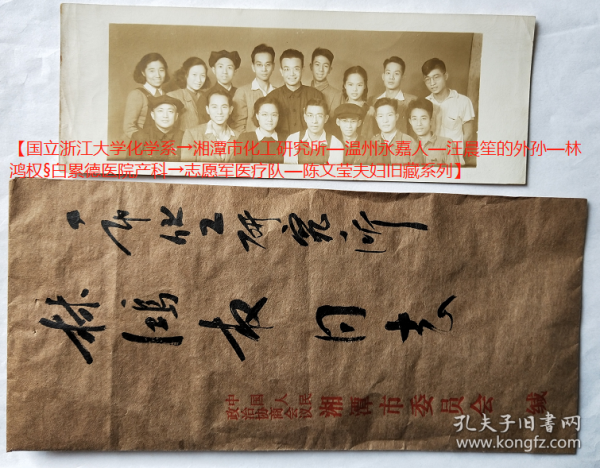 【国立浙江大学化学系→湘潭市化工研究所—温州永嘉人—汪晨笙的外孙—林
鸿权§白累德医院产科→志愿军医疗队—陈文莹夫妇旧藏系列】
市化工研究所
林鸿权同志
中国人民
政治协商会议
湘潭市委员会 缄
孔夫子旧书网
www.kongfz.com